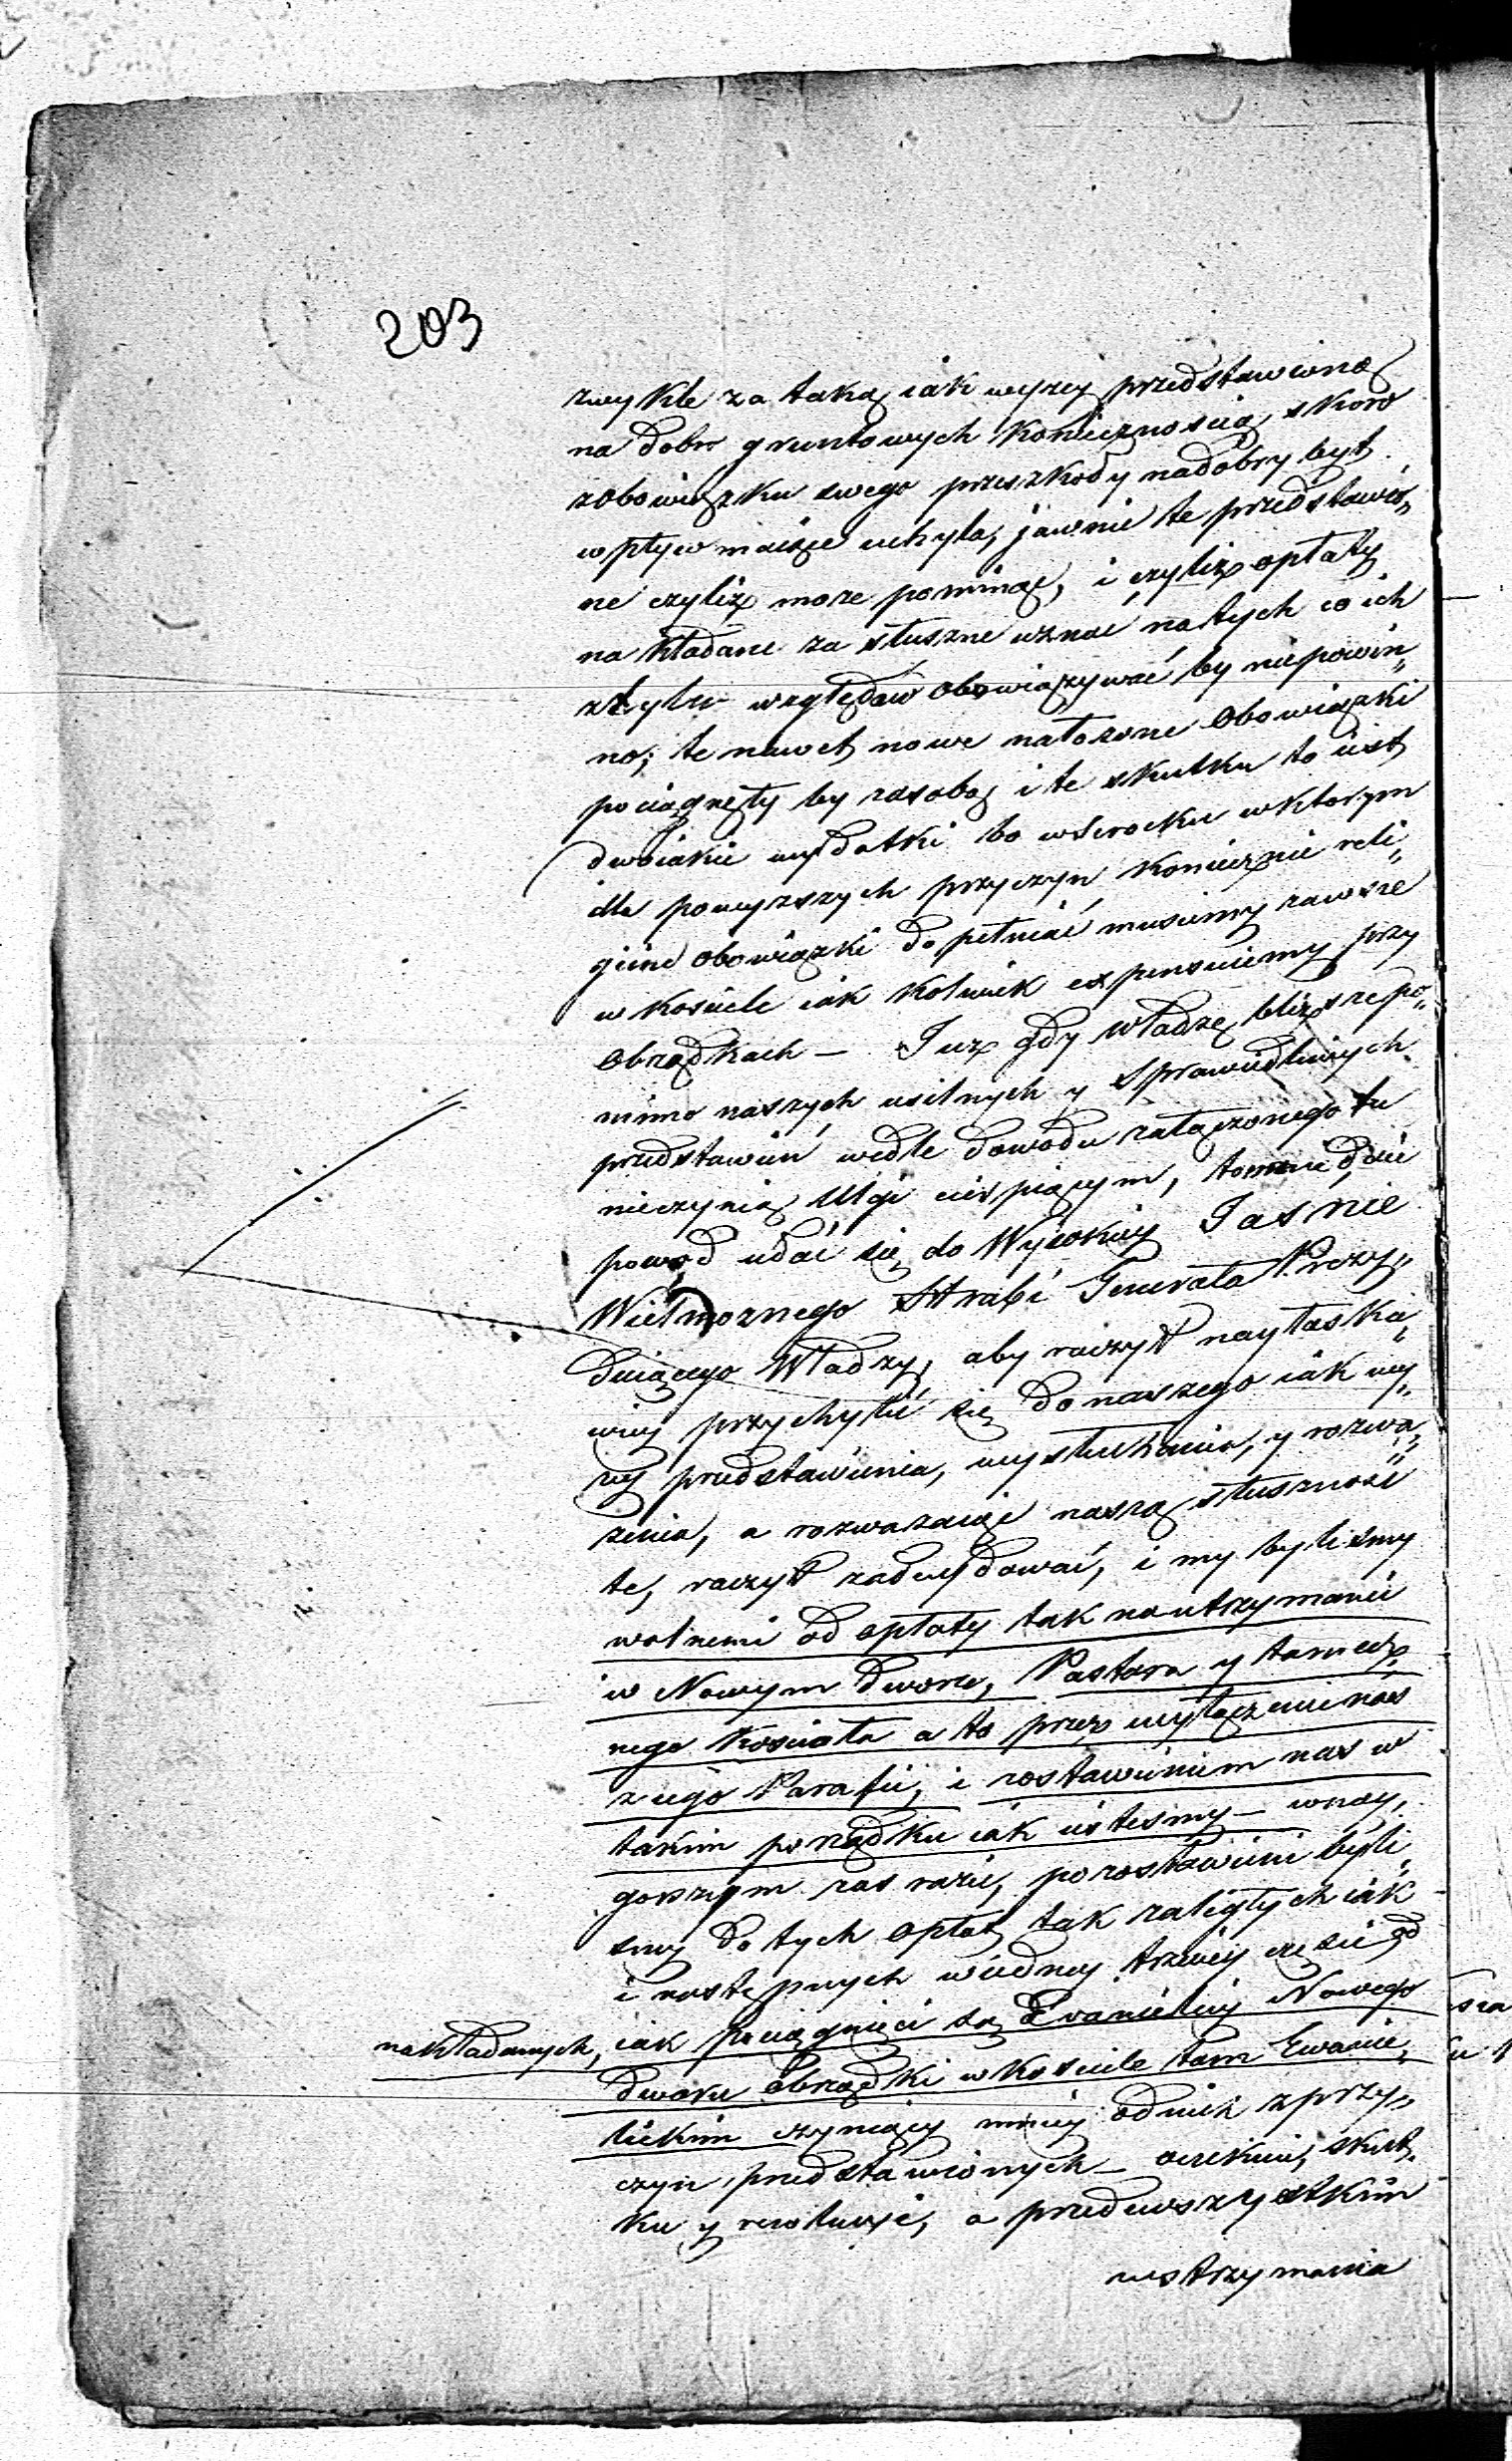 203
zwykle za taką iak wyzey przedstawioną
na dobr gruntowych koniecznoscią, skoro
zobowiązku swego przeszkody nadobry byt
wpływ maiące uchyla, jawnie te przedstawio„
ne czyliż moze pominąć, i czyliż opłaty
nakładane za słuszne uznać na tych co ich
z tylu względow obowiązywać by niepowin„
no; te nawet nowe nałozone Obowiązki
pociągnęły by zasobą i te skutku to iest
dwoiakie wydatki bo w Serocku w ktorym
dla powyzszych przyczyn koniecznie reli„
giine obowiązki dopełniać musiemy zawsze
w kosciele iak kolwiek expensuiemy przy
Obrządkach — Iuż gdy Władze bliższe po„
mimo naszych usilnych y sprawiedliwych
przedstawień wedle dowodu załączonego tu
nieczynią Ulgi cierpiącym, to daie
powod udać się do Wysokiey Iasnie
Wielmoznego Hrabi Generała Prezy„
duiącego Władzy, aby raczył nayłaska„
wiey przychylić się do naszego iak wy„
zey przedstawienia, wysłuchania, y rozwa„
zenia, a rozwazaiąc naszą słuszność
te, raczył zadecydować, i my bylismy
wolnemi od opłaty tak na utrzymanie
w Nowym Dworze, Pastora y tameż„
nego Koscioła a to przez wyłączenie nas
z iego Parafii, i zostawieniem nas w
takim porządku iak iestesmy — wnay„
gorszym zas razie, pozostawieni byli„
smy do tych opłat tak zaległych iak
i nastepnych w iedney trzeciey częsci od
nakładanych, iak pociągnieci są Ewanieliey Nowego
Dworu Obrządki w Kosciele tam Ewanie„
lickim czyniący mniey od nich z przy„
czyn przedstawionych — oczekuiąc skut„
ku y rezolucyi, a przedewszystkim
wstrzymania